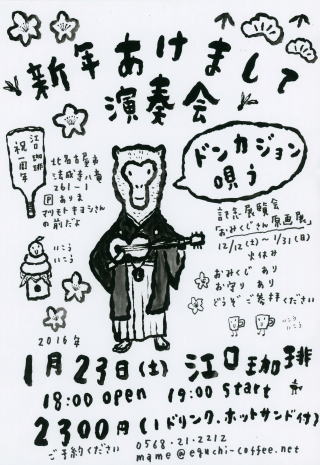 新年あけまして
演奏会
江口珈琲
祝一周年
北名古屋市
法成寺八蕃
261-1
P あります
マリモトキヨシさん
の前だよ
ドンカジョン
唄う
記念展覧会
「おみくじさん原画展」
12/12(土)〜1/31(日)
火休み
おみくじ あり
お守り あり
どうぞ ご参拝ください
いこう
いこう
いこう
いこう
2016年
1月23日(土) 江口珈琲
18:00 open 19:00 start
2300円(1ドリンク・ホットサンド付)
ご予約ください
0568・21・2212
mame@eguchi-coffee.net